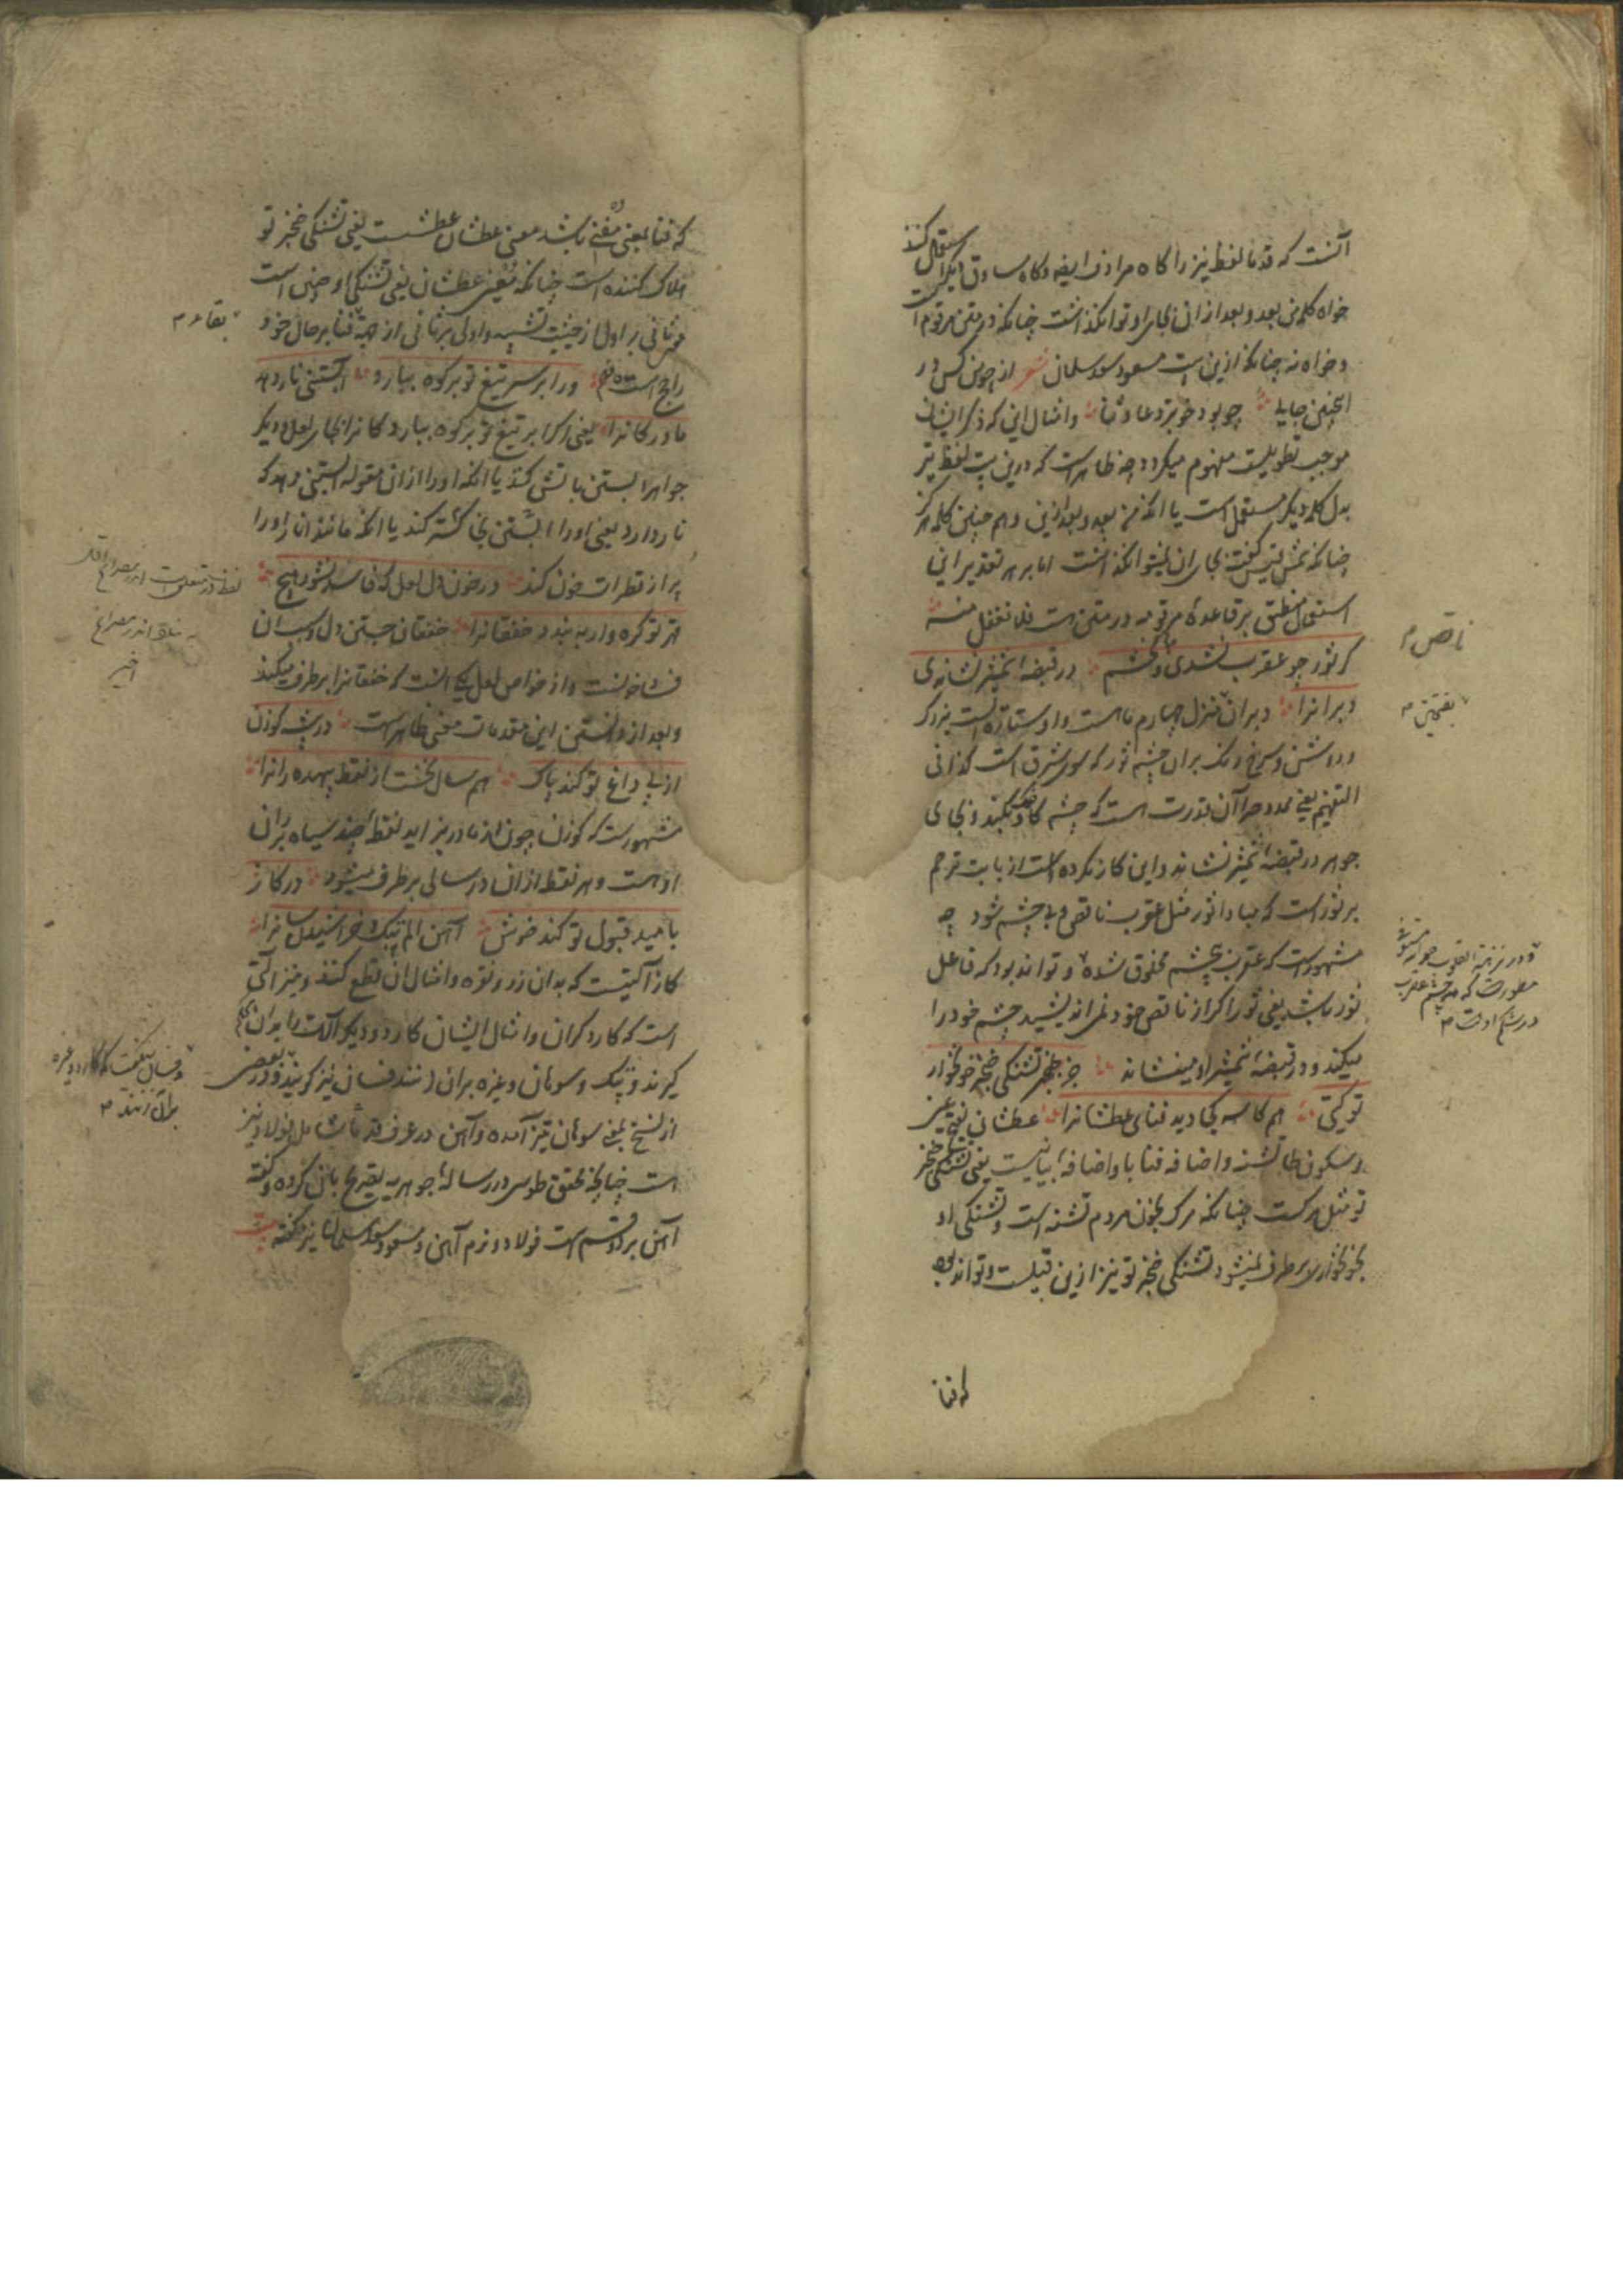 آنست که قدما لفظ نیز را گاه مرادف ایضا و گاه مساوق دیگر استعمال کنند
خواه کلمه من بعد و بعد از ان بجای او توان گذاشت چنانکه در متن مرقوم است
و خواه نه چنانکه ازین است مسعود سعد سلمان شعر از چون من کس در
اینچنین جای چو بود خوبتر دعا و ثنا و امثال این که ذکر ایشان
موجب تطویلست مفهوم میگردد چه ظاهر است که درین بیت لفظ نیز
بدل کلمه دیگر مستعمل است یا آنکه من بعد و بعد ازین و هم چنین کلمه هرگز
چنانکه شمس قیس گفته بجای ان نمیتوان گذاشت اما بر هر تقدیر این
استعمال منطبق بر قاعدهٔ مرقومه در متن است فلا تغفل منه
گر ثور چو عقرب نشدی و بی چشم در قبضه شمشیر نشاندی
دبرانرا دبران منزل چهارم ماست و او ستاره ایست بزرگ
و روشن و سرخ رنگ بران چشم ثور که سوی مشرق است کذا فی
التفهیم یعنی ممدوح را آن قدرت است که چشم گاو بکند و بجای
جوهر در قبضهٔ شمشیر نشاند و این کار نکرده است از بابت ترحم
بر ثور است که مبادا ثور مثل عقرب ناقص و بی چشم شود چه
مشهور است که عقرب بیچشم مخلوق شده و تواند بود که فاعل
ثور باشد یعنی ثور اگر از ناقص خود نمی اندیشید چشم خود را
میکند و در قبضهٔ شمشیر او مینشاند جز تشنگی خنجر خونخوار
تو گیتی هم کاسه کجا دید فنای عطشانرا عطشان بفتح عین
و سکون طا تشنه و اضافه فنا با و اضافهٔ بیانیست یعنی تشنگی خنجر
تو مثل مرگست چنانکه مرگ بخون مردم تشنه است و تشنگی او
بخونخواری برطرف نمیشود تشنگی خنجر تو نیز ازین قبیلست و تواند بود
که فنا
ناقص م
بفتحتین م
و در نزهة القلوب
مسطورست که چشم عقرب
در شکم اوست م
که فنا بمعنی مفنی باشد معنی عطشان عطشست یعنی تشنگی خنجر تو
هلاک کننده است چنانکه معنی عطشان یعنی تشنگی او چنین است
و ثانی بر اول از حیثیت تشبیه و اولی بر ثانی از جهة فنا بر حال خود
راجح است ور ابر سر تیغ تو بر کوه ببارد آبستنی نار دهد
مادر کانرا یعنی اگر ابر تیغ تو بر کوه ببارد کانرا بجای لعل و دیگر
جواهر آبستن باتش کند یا آنکه او را ازان مقوله آبستنی دهد که
نار دارد یعنی او را آبستن بخاکستر کند یا آنکه مانند انار او را
پر از قطرات خون کند در خون دل لعل که فاسد نشود هیچ
قهر تو گره وار ببندد خفقانرا خفقان جستن دل و سبب ان
فساد خونست و از خواص لعل یکی آنست که خفقانرا برطرف میکند
و بعد از دانستن این مقدمات معنی ظاهر است در بیشه گوزن
از پی داغ تو کند پاک هم سال نخست از نقط بیهده رانرا
مشهورست که گوزن چون از مادر بزاید نقطهٔ چند سیاه بر ران
او هست و هر نقطه ازان در سالی برطرف میشود در گاز
بامید قبول تو کند خوش آهن الم پتک و خراشیدن سانرا
گاز آلتیست که بدان زر و نقره و امثال ان قطع کنند و نیز آلتی
است که کاردگران و امثال ایشان کارد و دیگر آلت را بدان محکم
گیرند و پتک و سوهان و غیره بران زنند فسان نیز گویند و در بعضی
از نسخ بمعنی سوهان نیز آمده و آهن در عرف قدما شامل فولاد نیز
است چنانچه محقق طوسی در رسالهٔ جوهریه تصریح بان کرده و گفته
آهن بر دو قسم است فولاد و نرم آهن و مسعود سعد سلمان نیز گفته بیت
بقا م